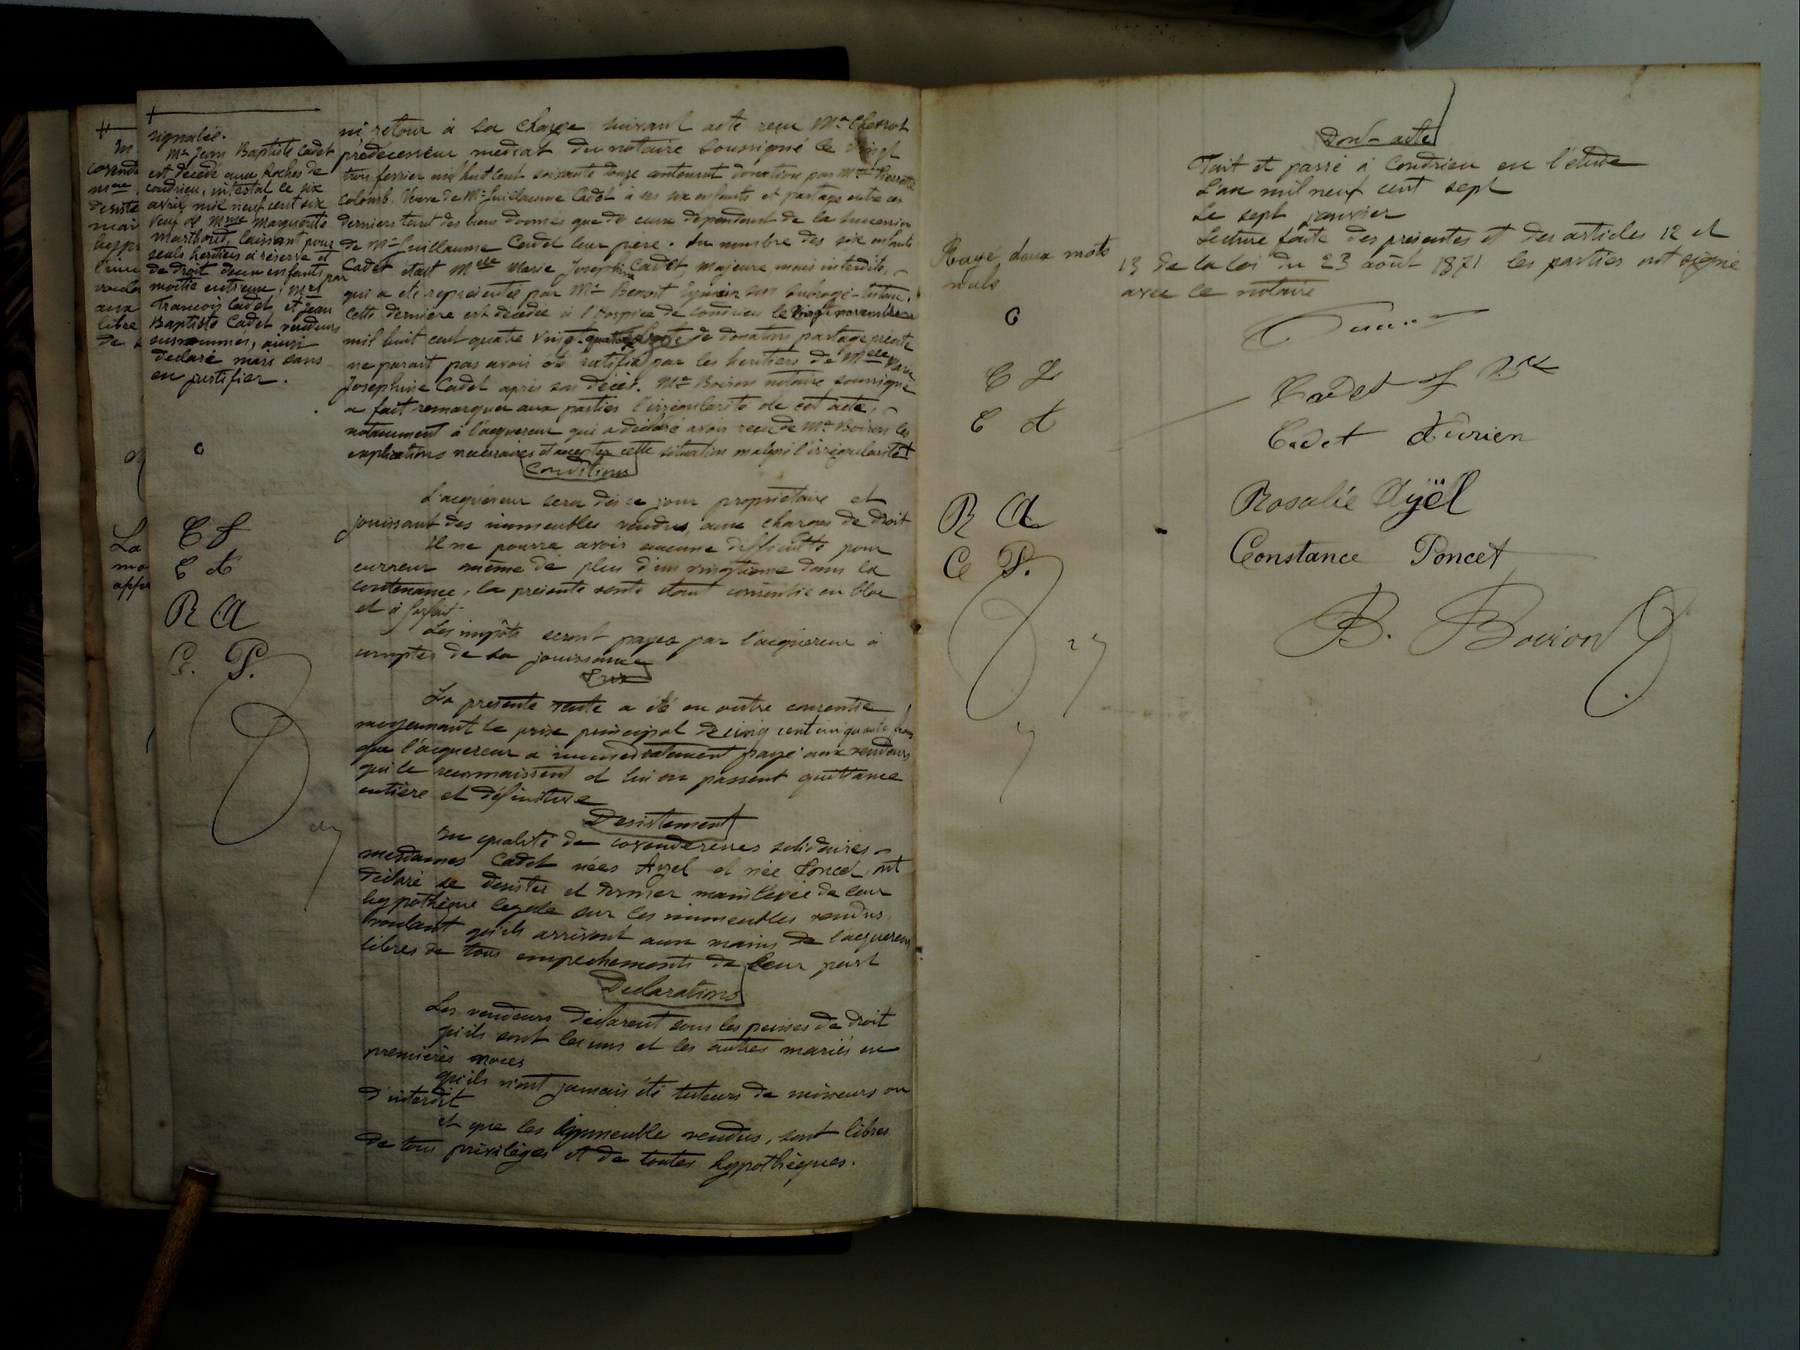 signalée.
Mr Jean Baptiste Cadet
est décédé aux Roches de
Condrieu, intestat le six
avril mil neuf cent six
veuf de Mme Marguerite
laissant pour
seuls héritiers à réserve et
de droit deux enfants par
moitié entreeux, Mrs
François Cadet et Jean
Baptiste Cadet vendeurs
susnommés, ainsi
déclaré mais sans
en justifier.
C f
C A
R A
C. P.
ni retour à sa charge suivant acte reçu Me
prédécesseur médiat du notaire soussigné le vingt
trois fevrier mil huit cent soixante contenant donation par Mme
colomb, veuve de Mr Guillaume Cadet à ses six enfants et partage entre ces
derniers tant des biens donnés que de ceux dépendant de la succession
de Mr Guillaume Cadet leur père. Au nombre des six enfants
Cadet était Melle Marie Josephine Cadet majeure, mais interdite,
qui a été représentée par Mr Benoit son subrogé-tuteur.
Cette dernière est décédée à l'hospice de Condrieu le vingt novembre
mil huit cent quatre vingt de donation partage précité
ne parait pas avoir été ratifié par les héritiers de Melle Marie
Josephine Cadet après son décès. Me Boiron notaire soussigné
a fait remarquer aux parties l'irrégularité de cet acte,
notamment à l'acquéreur qui a déclaré avoir reçu de Me Boiron les
explications nécessaires et accepter cette situation malgré l'irrégularité
Conditions
L'acquéreur sera dès ce jour propriétaire et
jouissant des immeubles vendus, aux charges de droit
Il ne pourra avoir aucune difficulté pour
erreur même de plus d'un vingtième dans la
contenance, la présente vente étant consentie en bloc
et à forfait.
Les impôts seront payés par l'acquéreur à
compter de sa jouissance
Prix
La présente vente a été en outre consentie
moyennant le prix principal de cinq cent cinquante francs
que l'acquéreur a immédiatement payé aux vendeurs
qui le reconnaissent et lui en passent quittance
entière et définitive
Desistement
En qualité de covenderesses solidaires
mesdames Cadet nées Ayel et née Poncet, ont
déclaré se désister et donner mainlevée de leur
hypothèque légale sur les immeubles vendus
voulant qu'ils arrivent aux mains de l'acquéreur
libres de tous empêchements de leur part
Déclarations
Les vendeurs déclarent sous les peines de droit
qu'ils sont les uns et les autres mariés en
premières noces
qu'ils n'ont jamais été tuteurs de mineurs ou
d'interdit
et que les immeuble vendus, sont libres
de tous privilèges et de toutes hypothèques.
Rayé deux mots
nuls
C f
C A
R A
C P.
Dont-acte
Fait et passé à Condrieu en l'étude
L'an mil neuf cent sept
Le sept janvier
Lecture faite des présentes et des articles 12 et
13 de la loi du 23 août 1871 les parties ont signé
avec le notaire
Cadet f
Cadet
Rosalie Ayël
Constance Poncet
B. Boiron